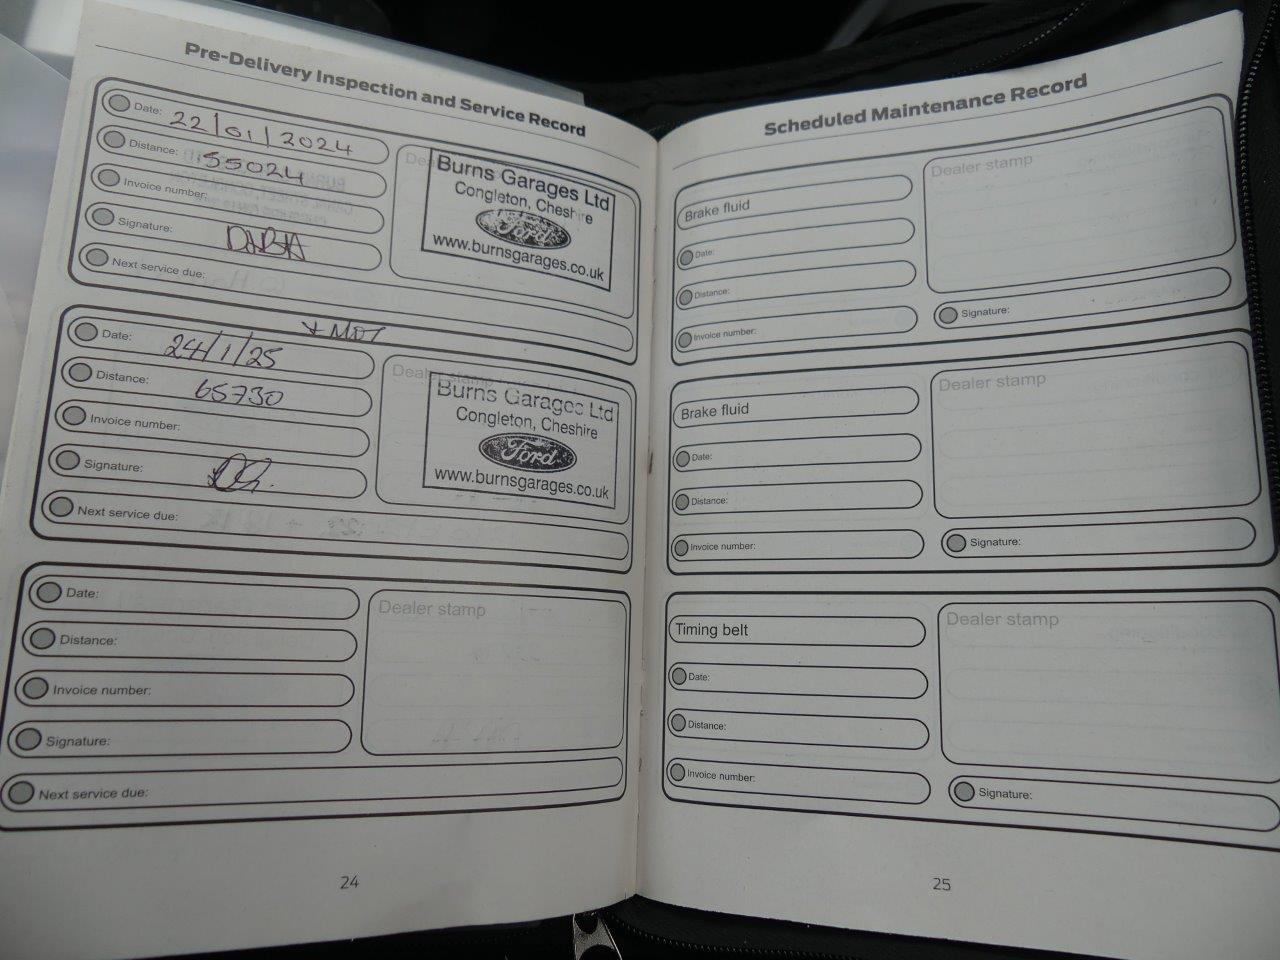 Pre-Delivery Inspection and Service Record
Date: 22/01/2024
Distance: 55024
Invoice number:
Signature:
Next service due:
Burns Garages Ltd
Congleton, Cheshire
Ford
www.burnsgarages.co.uk
+ MOT
Date: 24/1/25
Distance: 65730
Invoice number:
Signature:
Next service due:
Dealer stamp
Burns Garages Ltd
Congleton, Cheshire
Ford
www.burnsgarages.co.uk
Date:
Distance:
Invoice number:
Signature:
Next service due:
Dealer stamp
24
Scheduled Maintenance Record
Brake fluid
Date:
Distance:
Invoice number:
Dealer stamp
Signature:
Brake fluid
Date:
Distance:
Invoice number:
Dealer stamp
Signature:
Timing belt
Date:
Distance:
Invoice number:
Dealer stamp
Signature:
25